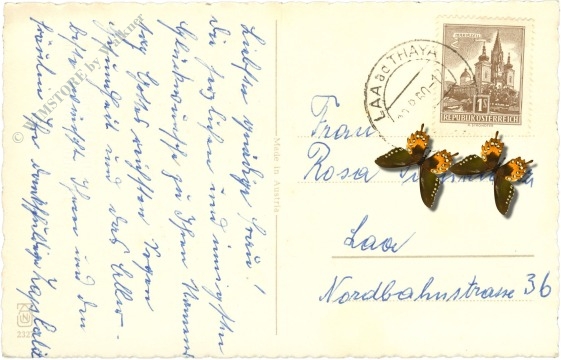 Liebste gnädige Frau!
Die herzlichsten und innigsten
Glückwünsche zu Ihrem Namens-
tag. Gottes reichsten Segen
Gesundheit und das Aller-
beste wünscht Ihnen und den
Ihre dankschuldige
© FILMSTORE by Wallner
Made in Austria
LAA ac THAYA
MARIAZELL
1S
REPUBLIK ÖSTERREICH
Frau
Rosa
Laa
Nordbahnstrasse 36